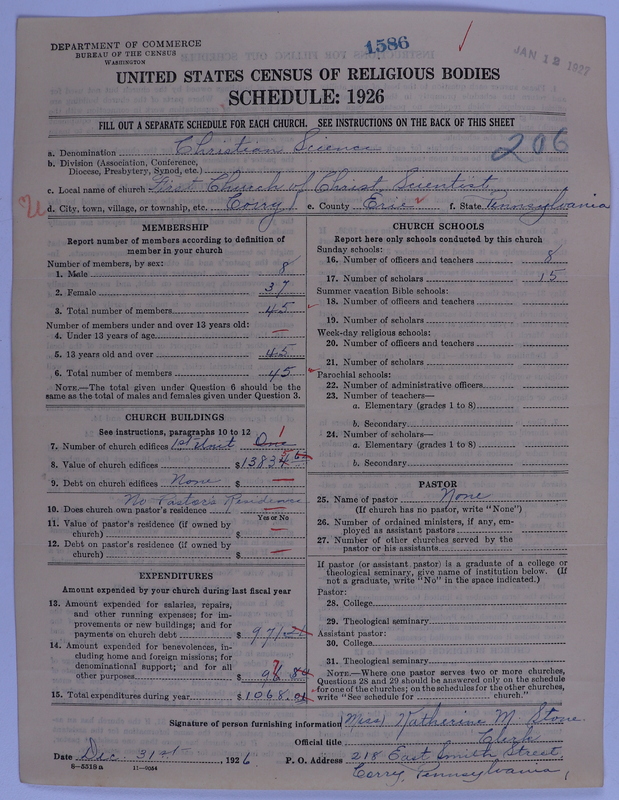 DEPARTMENT OF COMMERCE
BUREAU OF THE CENSUS
WASHINGTON
1586
JAN 12 1927
UNITED STATES CENSUS OF RELIGIOUS BODIES
SCHEDULE: 1926
FILL OUT A SEPARATE SCHEDULE FOR EACH CHURCH. SEE INSTRUCTIONS ON THE BACK OF THIS SHEET
206
a. Denomination Christian Science
b. Division (Association, Conference,
Diocese, Presbytery, Synod, etc.)
c. Local name of church First Church of Christ, Scientist
d. City, town, village, or township, etc. Corry e. County Erie f. State Pennsylvania
MEMBERSHIP
Report number of members according to definition of
member in your church
Number of members, by sex:
1. Male 8
2. Female 37
3. Total number of members 45
Number of members under and over 13 years old:
4. Under 13 years of age —
5. 13 years old and over 45
6. Total number of members 45
NOTE.—The total given under Question 6 should be the
same as the total of males and females given under Question 3.
CHURCH BUILDINGS
See instructions, paragraphs 10 to 12
7. Number of church edifices 1st Unit One 1
8. Value of church edifices $13834
9. Debt on church edifices None $ —
No Pastor's Residence
10. Does church own pastor's residence —
Yes or No
11. Value of pastor's residence (if owned by
church) $ —
12. Debt on pastor's residence (if owned by
church) $ —
EXPENDITURES
Amount expended by your church during last fiscal year
13. Amount expended for salaries, repairs,
and other running expenses; for im-
provements or new buildings; and for
payments on church debt $ 971.21
14. Amount expended for benevolences, in-
cluding home and foreign missions; for
denominational support; and for all
other purposes $
15. Total expenditures during year $1068.01
CHURCH SCHOOLS
Report here only schools conducted by this church
Sunday schools:
16. Number of officers and teachers 8
17. Number of scholars 15
Summer vacation Bible schools:
18. Number of officers and teachers
19. Number of scholars
Week-day religious schools:
20. Number of officers and teachers
21. Number of scholars
Parochial schools:
22. Number of administrative officers
23. Number of teachers—
a. Elementary (grades 1 to 8)
b. Secondary
24. Number of scholars—
a. Elementary (grades 1 to 8)
b. Secondary
PASTOR
25. Name of pastor None
(If church has no pastor, write "None")
26. Number of ordained ministers, if any, em-
ployed as assistant pastors
27. Number of other churches served by the
pastor or his assistants
If pastor (or assistant pastor) is a graduate of a college or
theological seminary, give name of institution below. (If
not a graduate, write "No" in the space indicated.)
Pastor:
28. College
29. Theological seminary
Assistant pastor:
30. College
31. Theological seminary
NOTE.—Where one pastor serves two or more churches,
Questions 28 and 29 should be answered only on the schedule
for one of the churches; on the schedules for the other churches,
write "See schedule for church."
Signature of person furnishing information (Miss) Katherine M. Stone
Official title Clerk
Date Dec 31st, 1926 P. O. Address 218 East Smith Street
8-5518a 11-9054 Corry, Pennsylvania,